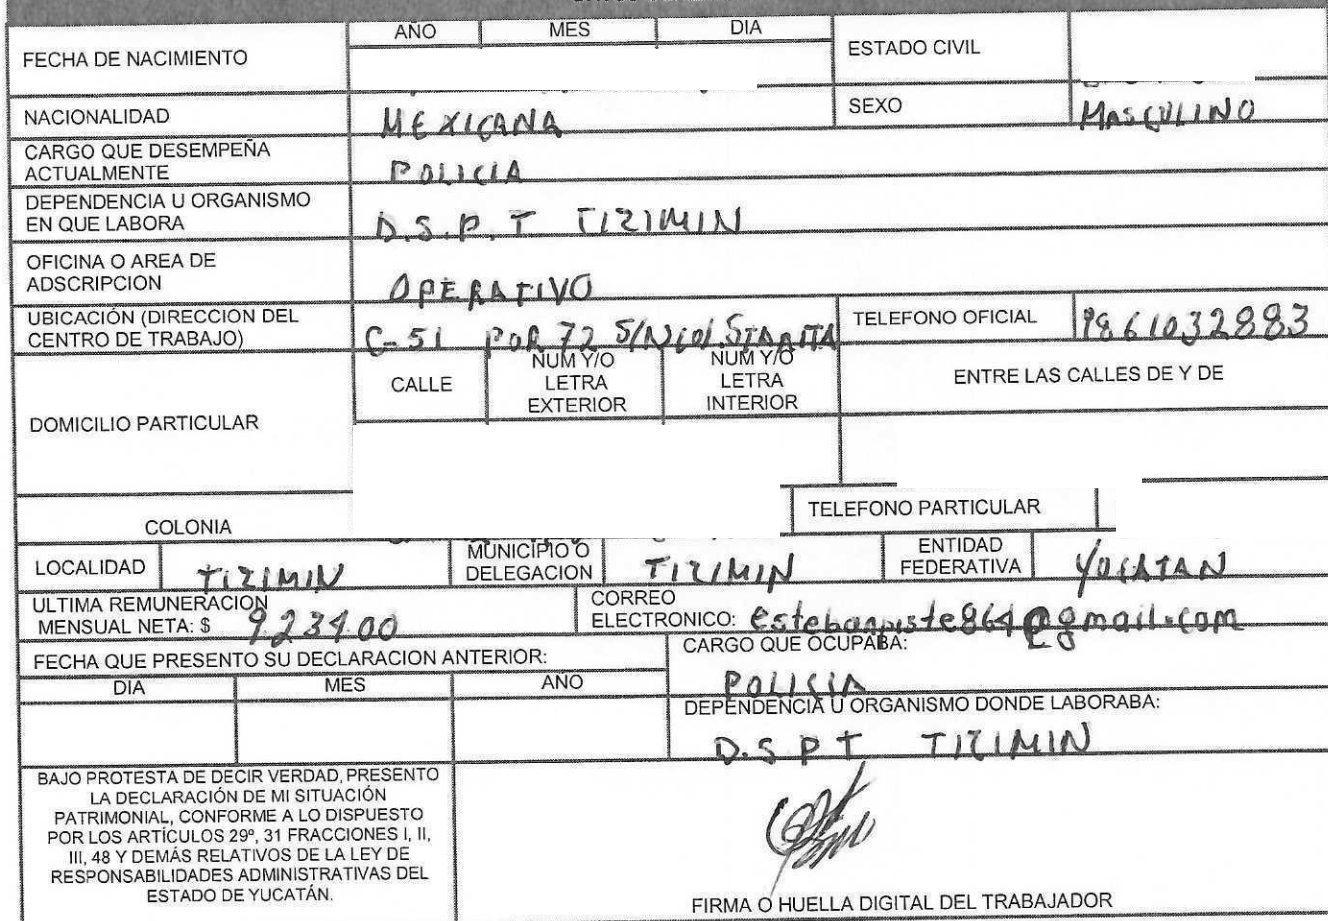 AÑO MES DIA
FECHA DE NACIMIENTO ESTADO CIVIL
NACIONALIDAD MEXICANA SEXO MASCULINO
CARGO QUE DESEMPEÑA
ACTUALMENTE POLICIA
DEPENDENCIA U ORGANISMO
EN QUE LABORA D.S.P.T TIZIMIN
OFICINA O AREA DE
ADSCRIPCION OPERATIVO
UBICACIÓN (DIRECCION DEL
CENTRO DE TRABAJO) C-51 POR 72 S/N COL. STA RITA TELEFONO OFICIAL 9861032883
DOMICILIO PARTICULAR
CALLE
NUM Y/O
LETRA
EXTERIOR
NUM Y/O
LETRA
INTERIOR
ENTRE LAS CALLES DE Y DE
COLONIA TELEFONO PARTICULAR
LOCALIDAD TIZIMIN
MUNICIPIO O
DELEGACION TIZIMIN
ENTIDAD
FEDERATIVA YUCATAN
ULTIMA REMUNERACION
MENSUAL NETA: $ 9234.00
CORREO
ELECTRONICO: estebanpiste864@gmail.com
FECHA QUE PRESENTO SU DECLARACION ANTERIOR:
DIA MES AÑO
CARGO QUE OCUPABA:
POLICIA
DEPENDENCIA U ORGANISMO DONDE LABORABA:
D.S P T TIZIMIN
BAJO PROTESTA DE DECIR VERDAD, PRESENTO
LA DECLARACIÓN DE MI SITUACIÓN
PATRIMONIAL, CONFORME A LO DISPUESTO
POR LOS ARTÍCULOS 29º, 31 FRACCIONES I, II,
III, 48 Y DEMÁS RELATIVOS DE LA LEY DE
RESPONSABILIDADES ADMINISTRATIVAS DEL
ESTADO DE YUCATÁN.
FIRMA O HUELLA DIGITAL DEL TRABAJADOR